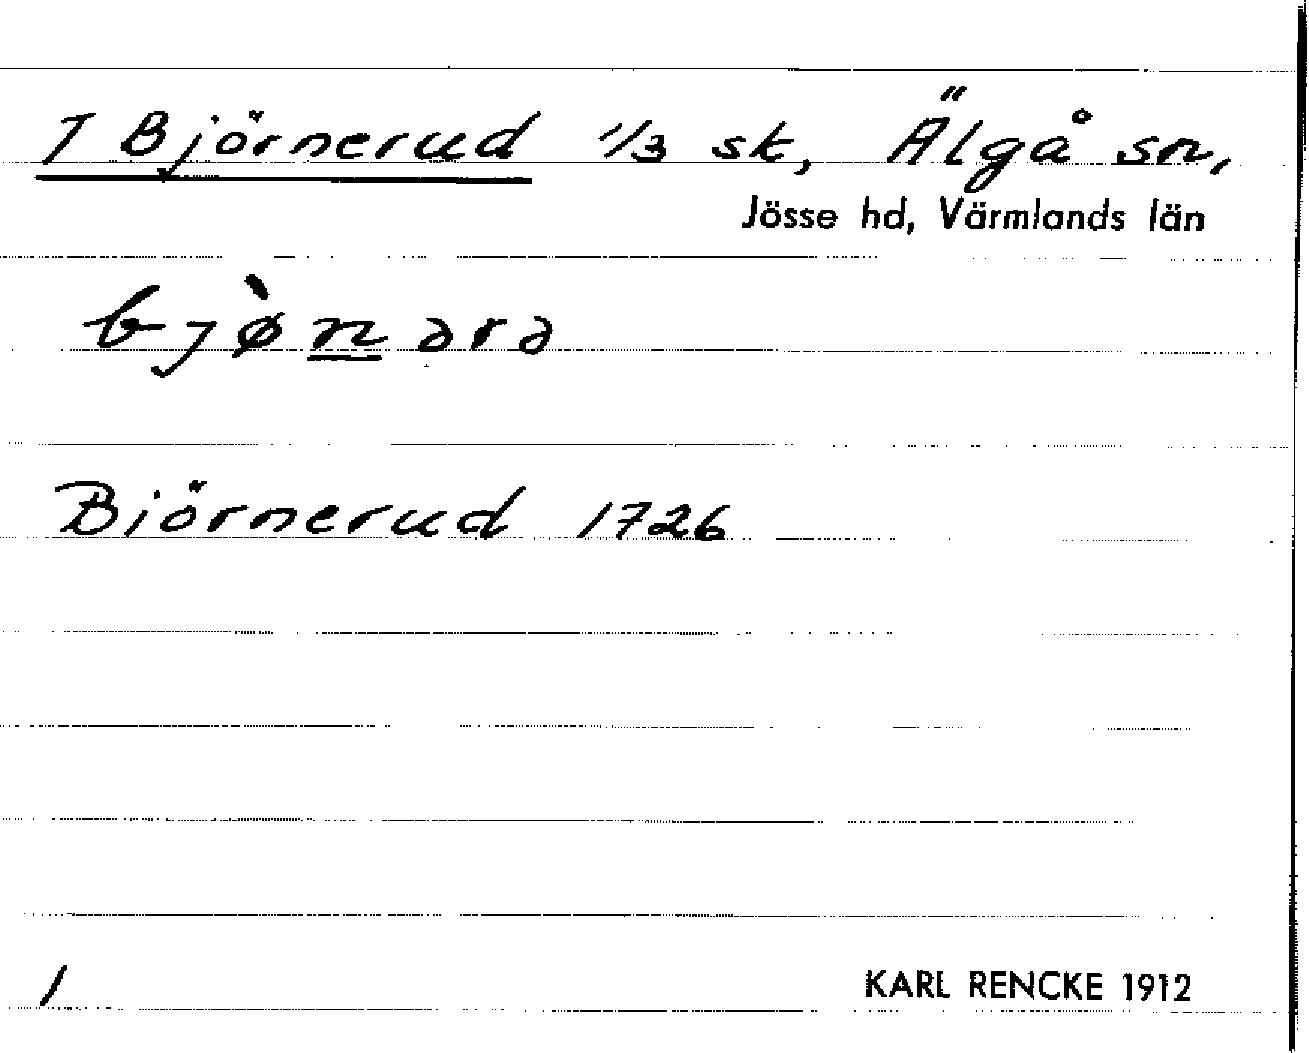 7 Björnerud 1/3 sk, Älgå sn,
Jösse hd, Värmlands län
bjø̀n̲ərə
Biörnerud 1726
1
KARL RENCKE 1912